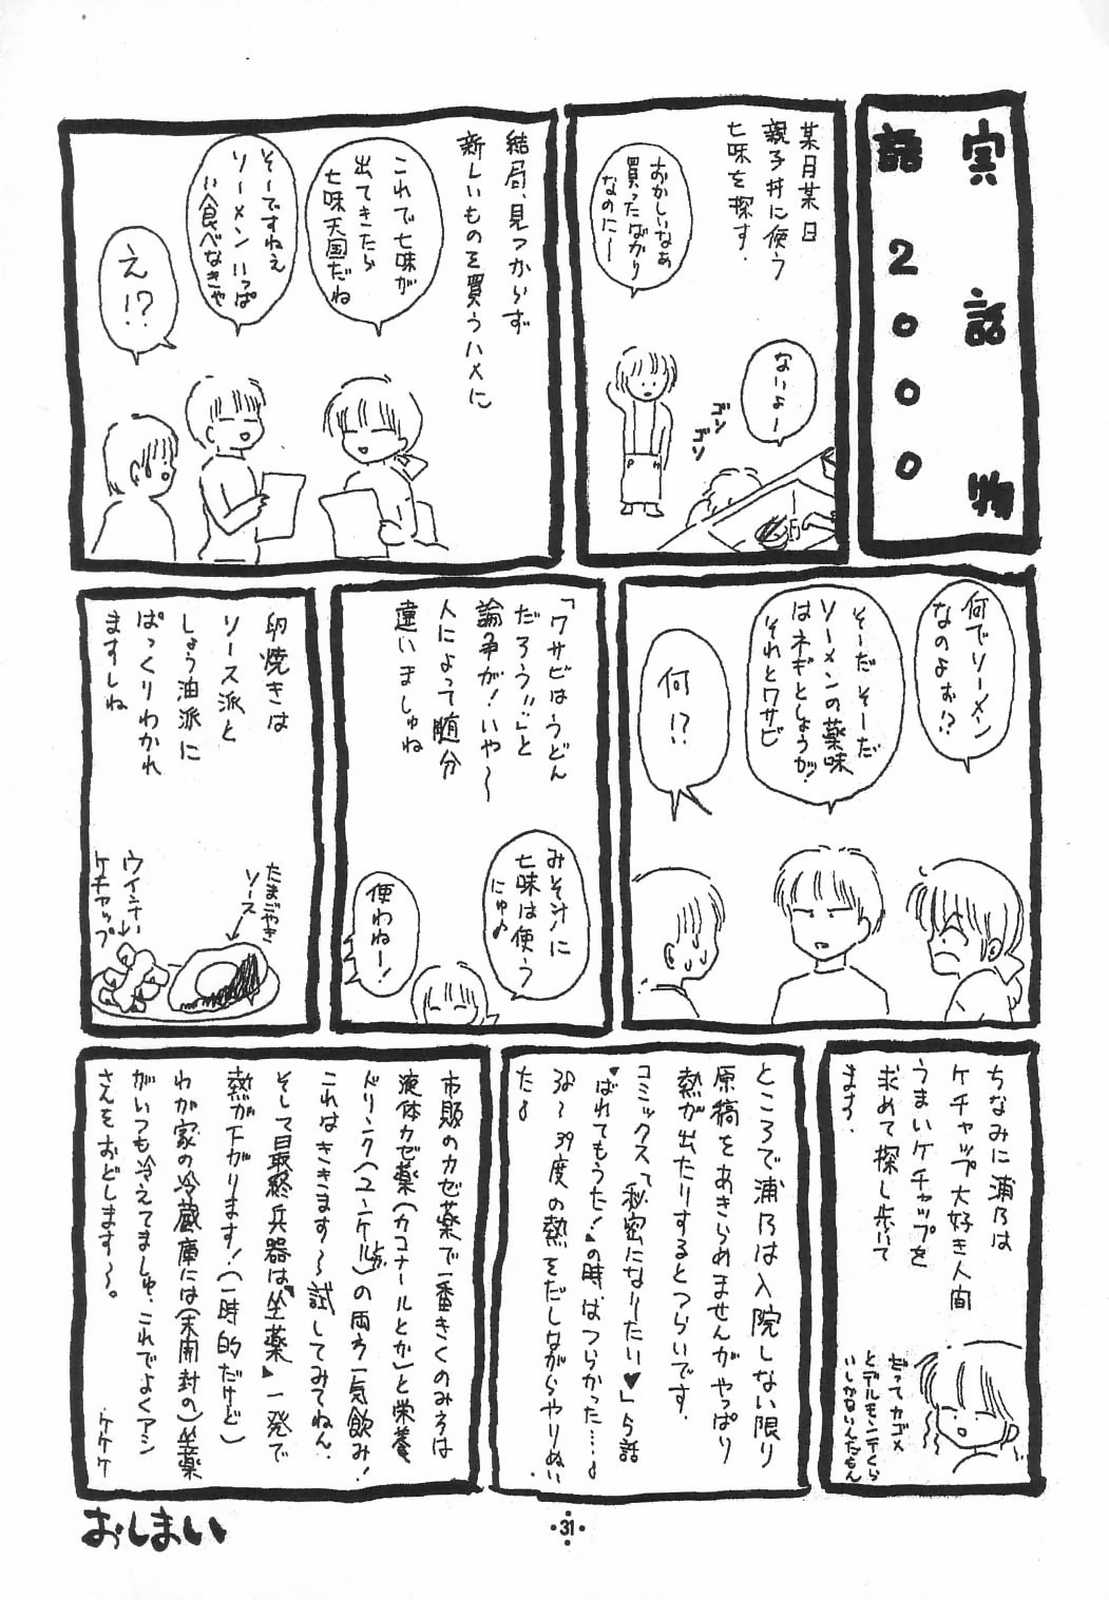 実話物
語2000
某月某日
親子丼に使う
七味を探す.
おかしいなぁ
買ったばかり
なのにー
ないよー
ゴン
ゴソ
結局、見つからず
新しいものを買うハメに
これで七味が
出てきたら
七味天国だね
そーですねぇ
ソーメンいっぱ
い食べなきゃ
え!?
何でソーメン
なのよぉ!?
そーだそーだ
ソーメンの薬味
はネギとしょうが!
それとワサビ
何!?
「ワサビはうどん
だろう」と
論争が!いや〜
人によって随分
違いましゅね
みそ汁に
七味は使う
にゅ♪
使わねー!
卵焼きは
ソース派と
しょう油派に
ぱっくりわかれ
ますしね
たまごやき
ソース
ウインナー
ケチャップ
ちなみに浦乃は
ケチャップ大好き人間
うまいケチャップを
求めて探し歩いて
ます.
だってカゴメ
とデルモンテくら
いしかないんだもん
ところで浦乃は入院しない限り
原稿をあきらめませんがやっぱり
熱が出たりするとつらいです.
コミックス「秘密になりたい♥」5話
♥ばれてもうた!♥の時はつらかった….
38〜39度の熱をだしながらやりぬい
た
市販のカゼ薬で一番きくのみ方は
液体カゼ薬(カコナールとか)と栄養
ドリンク(ユンケルとか)の両方一気飲み!
これはききます〜試してみてねん.
そして最終兵器は"坐薬"一発で
熱が下がります!(一時的だけど)
わが家の冷蔵庫には(未開封の)坐薬
がいつも冷えてましゅ.これでよくアシ
さんをおどします〜。
ケケケ
おしまい
31